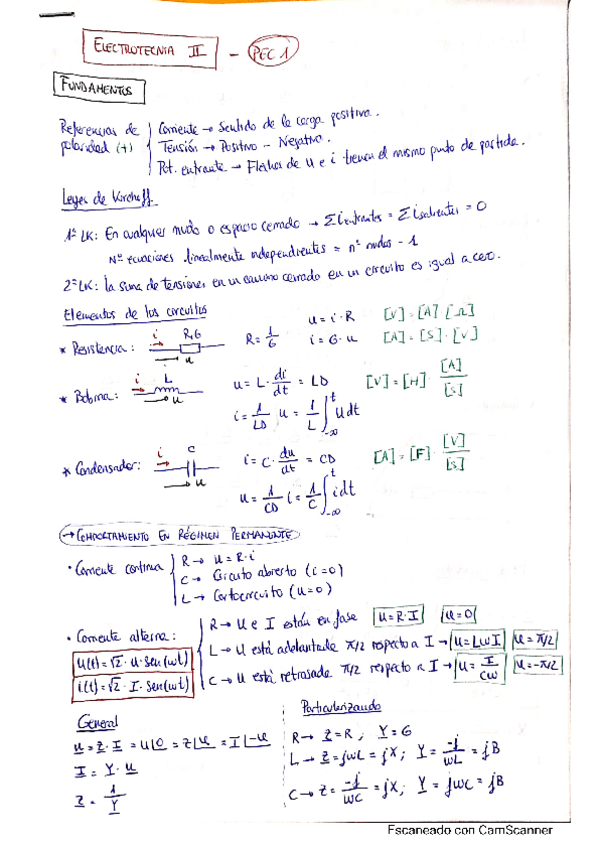 ELECTROTECNIA II - PEC 1
FUNDAMENTOS
Referencias de polaridad (+)
Corriente → Sentido de la carga positiva.
Tensión → Positivo - Negativo.
Pot. entrante → Flechas de u e i tienen el mismo punto de partida.
Leyes de Kirchoff
1ª LK: En cualquier nudo o espacio cerrado → Σ i entrantes = Σ i salientes = 0
Nº ecuaciones linealmente independientes = nº nudos - 1
2ª LK: La suma de tensiones en un camino cerrado en un circuito es igual a cero.
Elementos de los circuitos
* Resistencia: i R,G u R = 1/G u = i·R [V] = [A] [Ω]
i = G·u [A] = [S]·[V]
* Bobina: i L u u = L· di/dt = LD [V] = [H] [A]/[s]
i = 1/LD u = 1/L ∫ u dt t -∞
* Condensador: i C u i = C· du/dt = CD [A] = [F] [V]/[s]
u = 1/CD i = 1/C ∫ i dt t -∞
→ COMPORTAMIENTO EN RÉGIMEN PERMANENTE
• Corriente continua
R → u = R·i
C → Circuito abierto (i=0)
L → Cortocircuito (u=0)
• Corriente alterna:
u(t) = √2 · u · sen(wt)
i(t) = √2 · I · sen(wt)
R → U e I están en fase U = R·I U = 0
L → U está adelantada π/2 respecto a I → U = LωI U = π/2
C → U está retrasada π/2 respecto a I → U = I/Cω U = -π/2
General
U = Z·I = U|0 = Z|φ = I|-φ
I = Y·U
Z = 1/Y
Particularizando
R → Z = R, Y = G
L → Z = jωL = jX; Y = -j/ωL = jB
C → Z = -j/ωC = jX; Y = jωC = jB
Escaneado con CamScanner